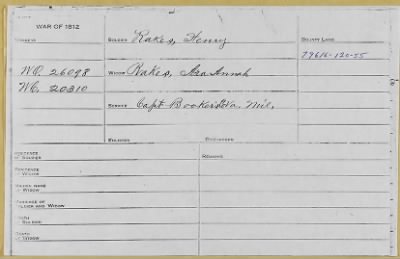 WAR OF 1812
NUMBERS
SOLDIER Rakes, Henry
BOUNTY LAND
79616-120-55
WO. 26098
WIDOW Rakes,
WC. 20310
SERVICE Capt. Va. Mil.
ENLISTED DISCHARGED
RESIDENCE OF SOLDIER
REMARKS
RESIDENCE OF WIDOW
MAIDEN NAME OF WIDOW
MARRIAGE OF SOLDIER AND WIDOW
DEATH OF SOLDIER
DEATH OF WIDOW